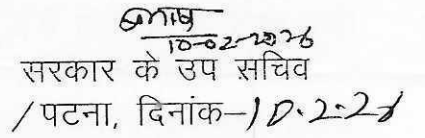 10-02-2026
सरकार के उप सचिव
/पटना, दिनांक–10.2.26